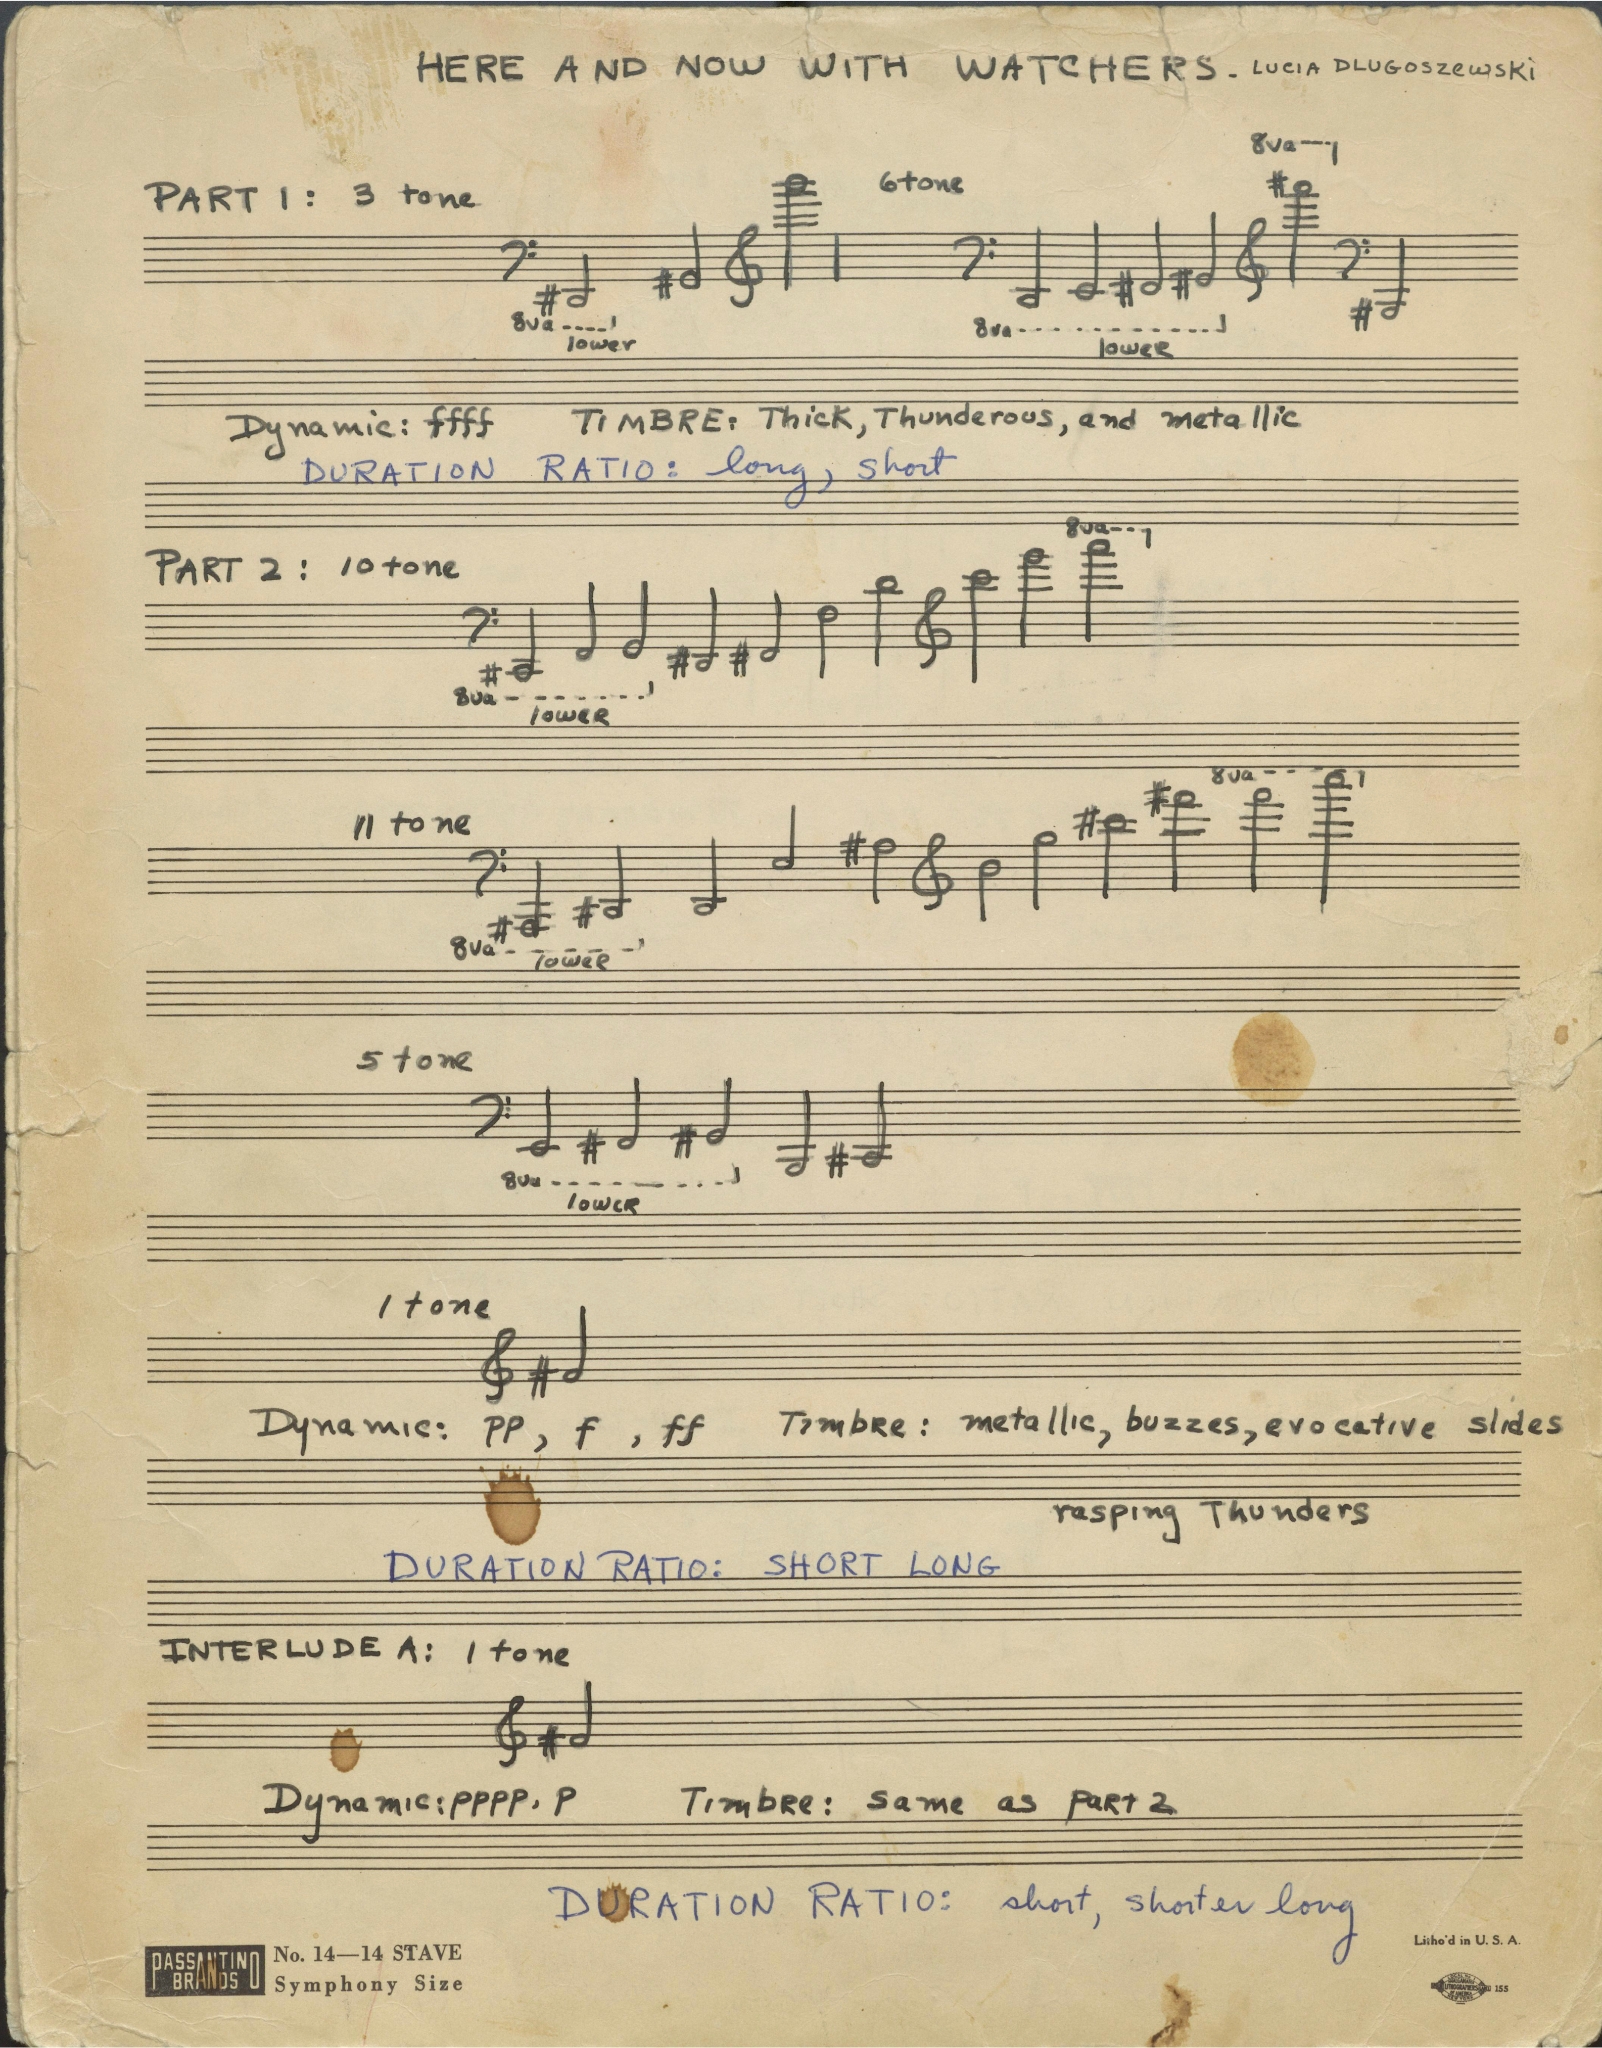 HERE AND NOW WITH WATCHERS. LUCIA DLUGOSZEWSKI
PART 1: 3 tone 6 tone 8va
8va lower 8va lower
Dynamic: ffff TIMBRE: Thick, Thunderous, and metallic
DURATION RATIO: long, short
PART 2: 10 tone 8va
8va lower
11 tone 8va
8va lower
5 tone
8va lower
1 tone
Dynamic: pp, f, ff Timbre: metallic, buzzes, evocative slides
rasping Thunders
DURATION RATIO: SHORT LONG
INTERLUDE A: 1 tone
Dynamic: pppp. p Timbre: same as part 2
DURATION RATIO: short, shorter long
PASSANTINO BRANDS No. 14—14 STAVE
Symphony Size
Litho'd in U. S. A.
155